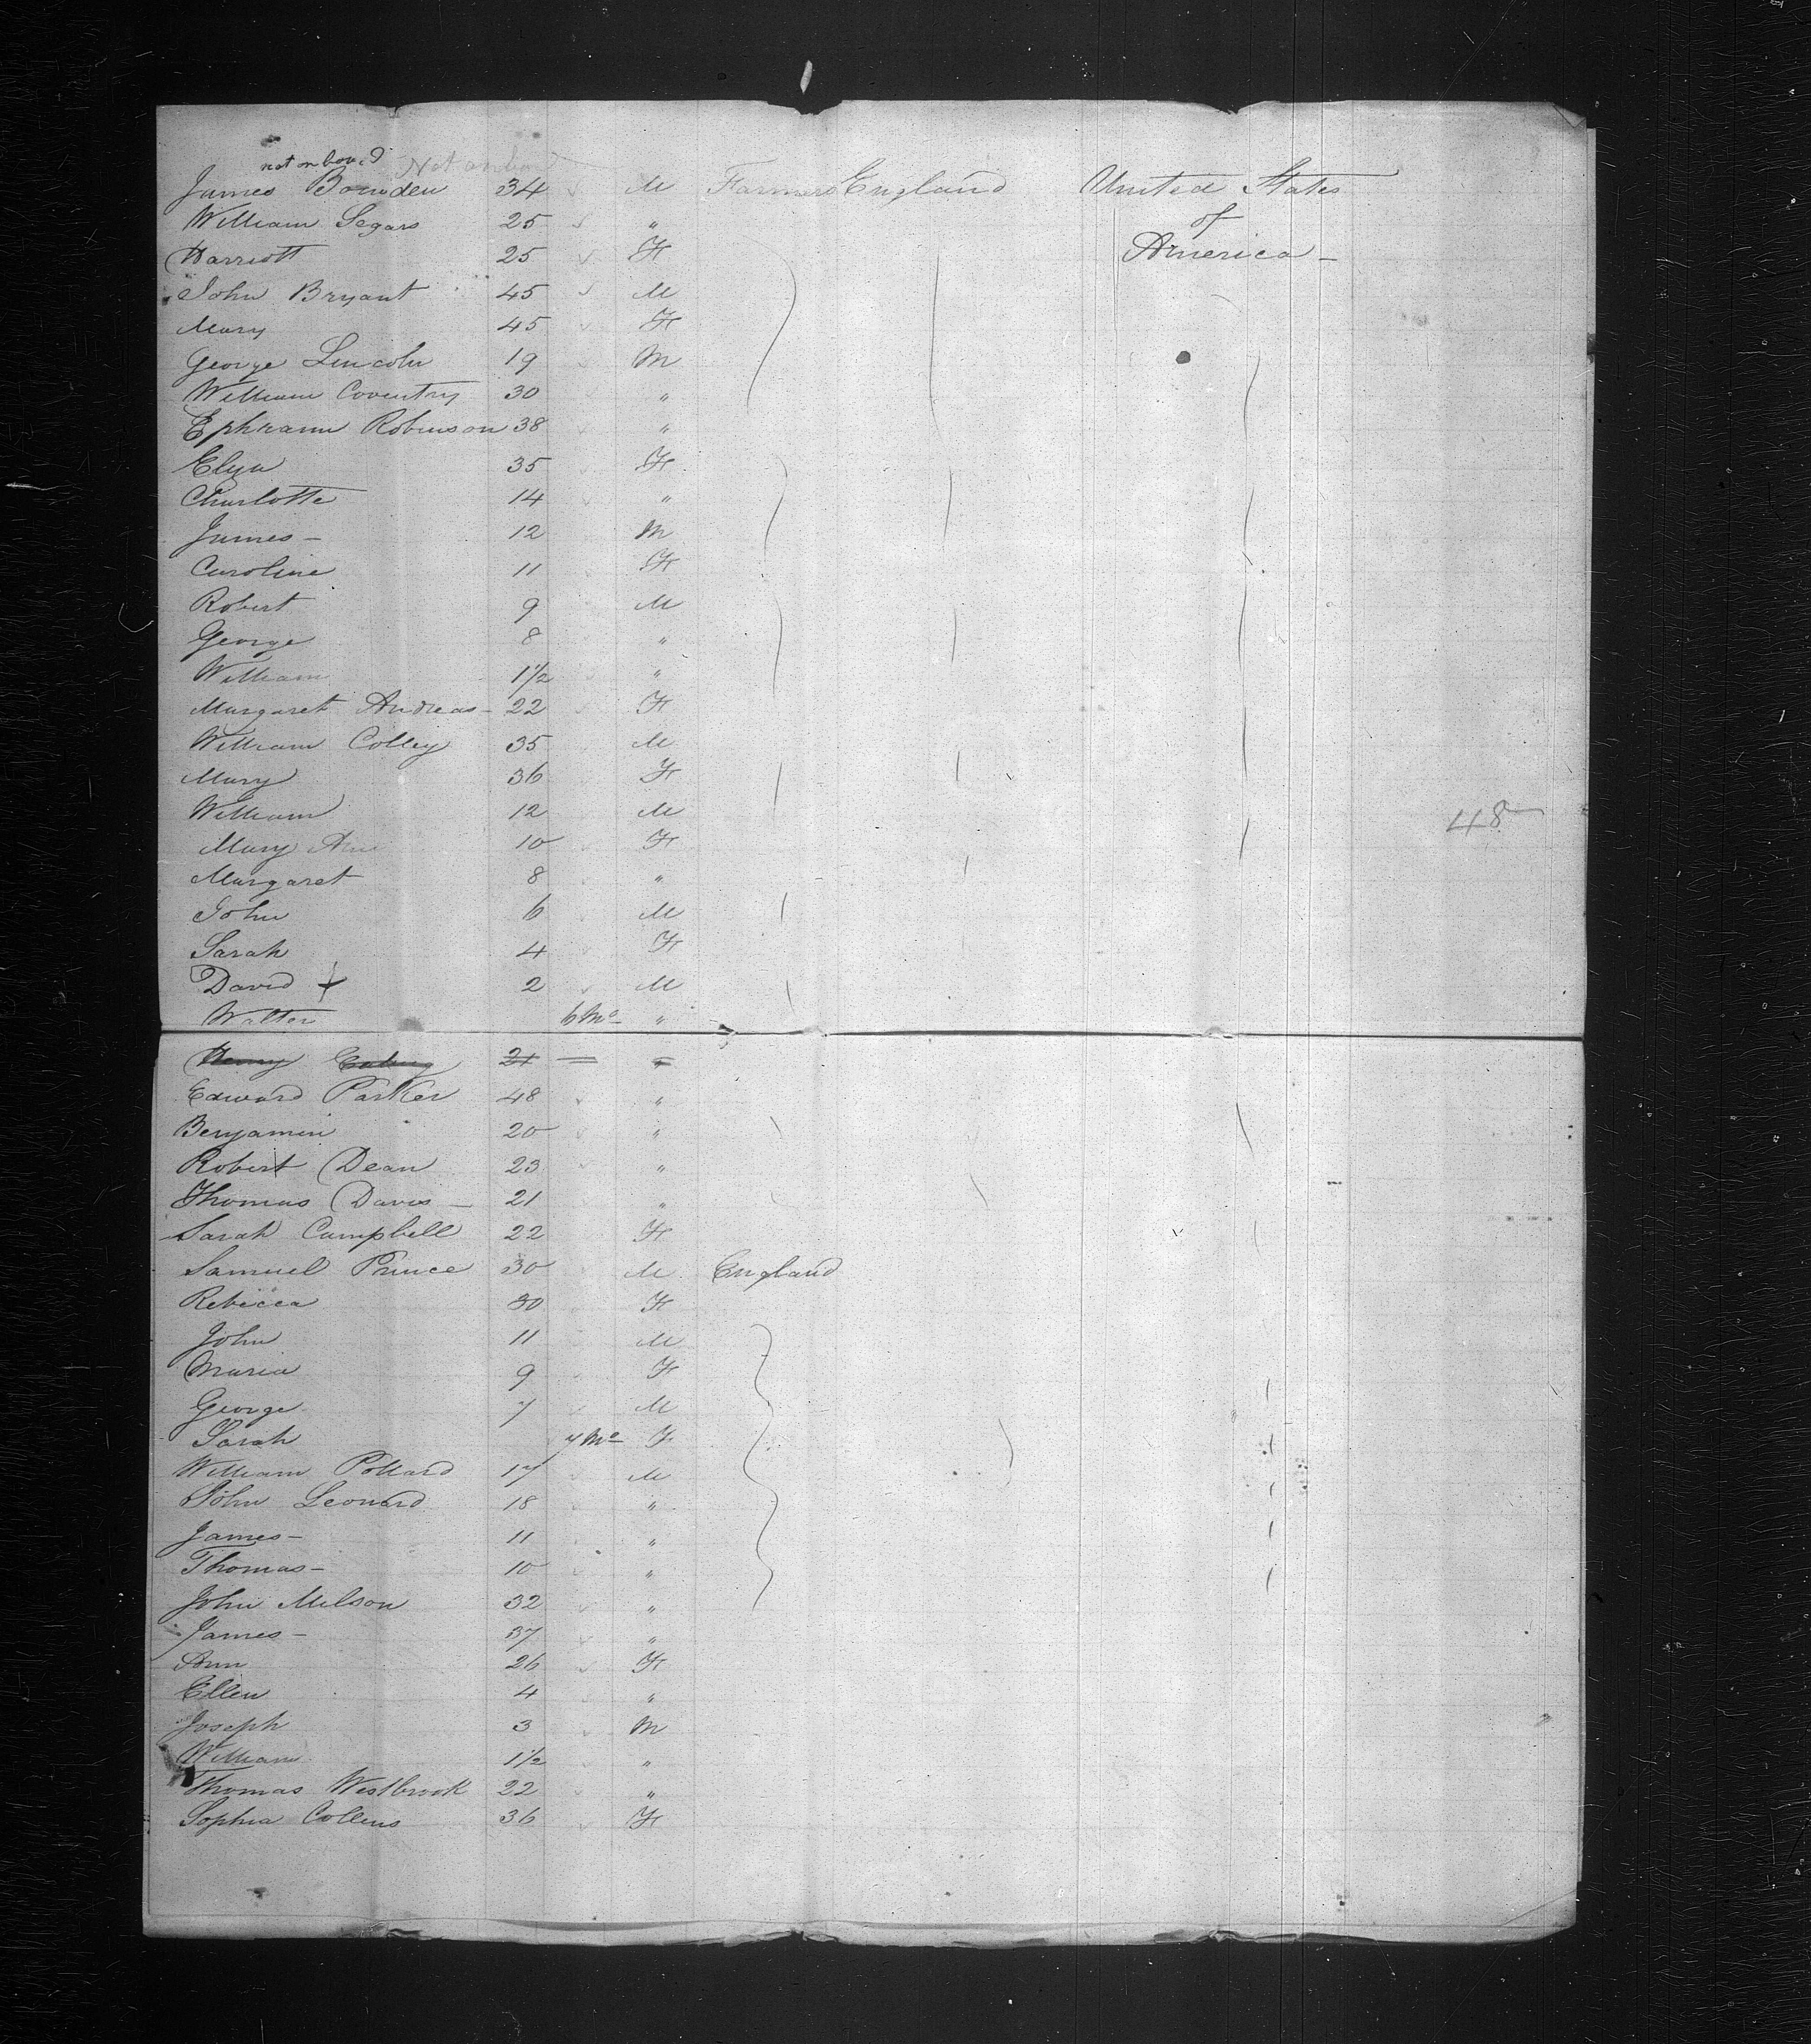 not on board Not on board
James Bowden 34 M Farmers England United States
William Segars 25 " of
Harriott 25 F America -
John Bryant 45 M
Mary 45 F
George Lincoln 19 M
William Coventry 30 "
Ephraim Robinson 38 "
Elza 35 F
Charlotte 14 "
James - 12 M
Caroline 11 F
Robert 9 M
George 8 "
William 1 1/2 "
Margaret Andreas - 22 F
William Colley 35 M
Mary 36 F
William 12 M 48
Mary Ann 10 F
Margaret 8 "
John 6 M
Sarah 4 F
David + 2 M
Walter 6 Mo "
Henry 21 "
Edward Parker 48 "
Benjamin 20 "
Robert Dean 23 "
Thomas Davis - 21 "
Sarah Campbell 22 F
Samuel Prince 30 M England
Rebecca 30 F
John 11 M
Maria 9 F
George 7 M
Sarah 7 Mo F
William Pollard 17 M
John Leonard 18 "
James - 11 "
Thomas - 10 "
John Milson 32 "
James - 37 "
Ann 26 F
Ellen 4 "
Joseph 3 M
William 1 1/2 "
Thomas Westbrook 22 "
Sophia Collens 36 F